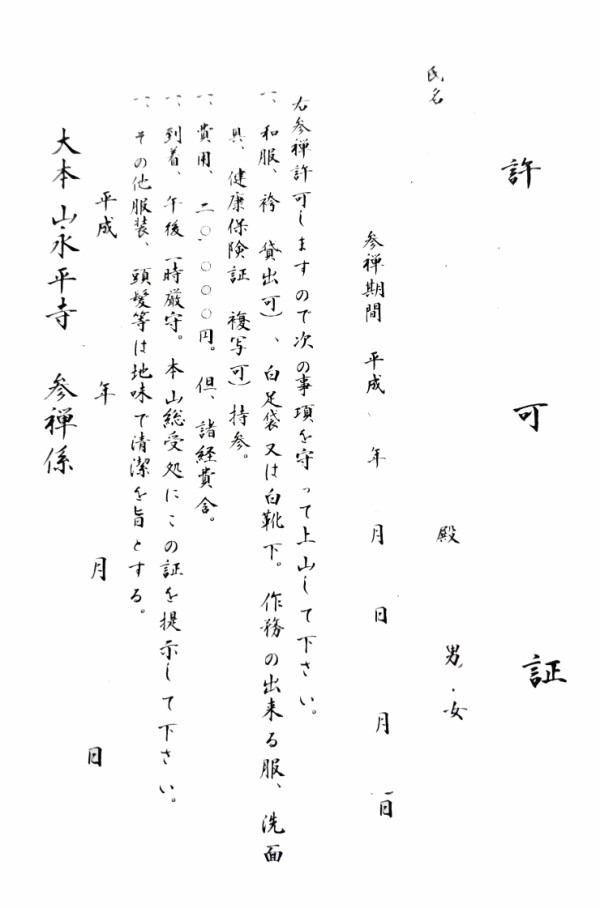 許可証
氏名 殿 男・女
参禅期間 平成 年 月 日 月 日
右参禅許可しますので次の事項を守って上山して下さい。
一、和服、袴 貸出可）、白足袋又は白靴下。作務の出来る服、洗面
具、健康保険証 複写可）持参。
一、費用、二〇、〇〇〇円。但、諸経費含。
一、到着、午後一時厳守。本山総受処にこの証を提示して下さい。
一、その他服装、頭髪等は地味で清潔を旨とする。
平成 年 月 日
大本山永平寺 参禅係